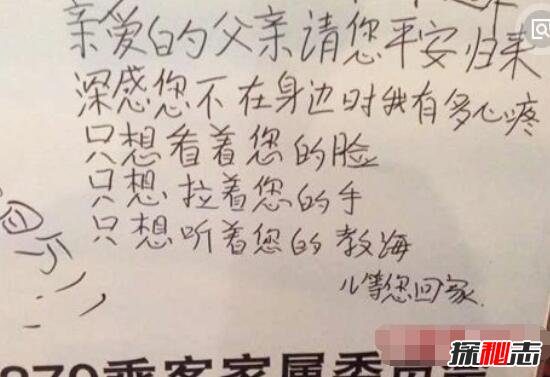 亲爱的父亲请您平安归来
深感您不在身边时我有多心疼
只想看着您的脸
只想拉着您的手
只想听着您的教海
儿等您回家.
乘客家属委
探秘志